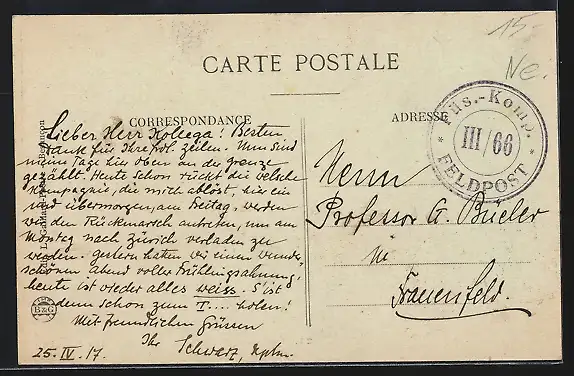 15-
Ne.
CARTE POSTALE
CORRESPONDANCE
ADRESSE
Füs.-Komp.
III/66
FELDPOST
Lieber Herr Kollega! Besten
Dank für Ihre frdl. Zeilen. Nun sind
meine Tage hier oben an der Grenze
gezählt. Heute schon rückt die welsche
Kompagnie, die mich ablöst, hier ein
und übermorgen, am Freitag, werden
wir den Rückmarsch antreten, um am
Montag nach Zürich verladen zu
werden. Gestern hatten wir einen wunder-
schönen Abend voller Frühlingsahnung,
heute ist wieder alles weiss. S'ist
denn schon zum T.... holen!
Mit freundlichen Grüssen
Ihr Schwarz, Hptm.
25. IV. 17.
Herrn
Professor G. Büeler
in
Frauenfeld.
B&G